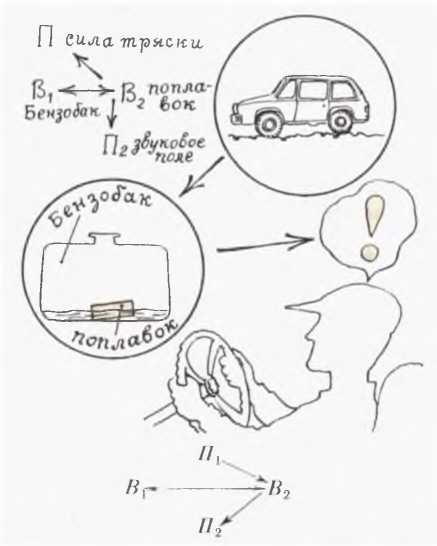 П сила тряски
В₁ В₂ попла-
Бензобак вок
П₂ звуковое
поле
Бензобак
!
поплавок
П₁
В₁ В₂
П₂